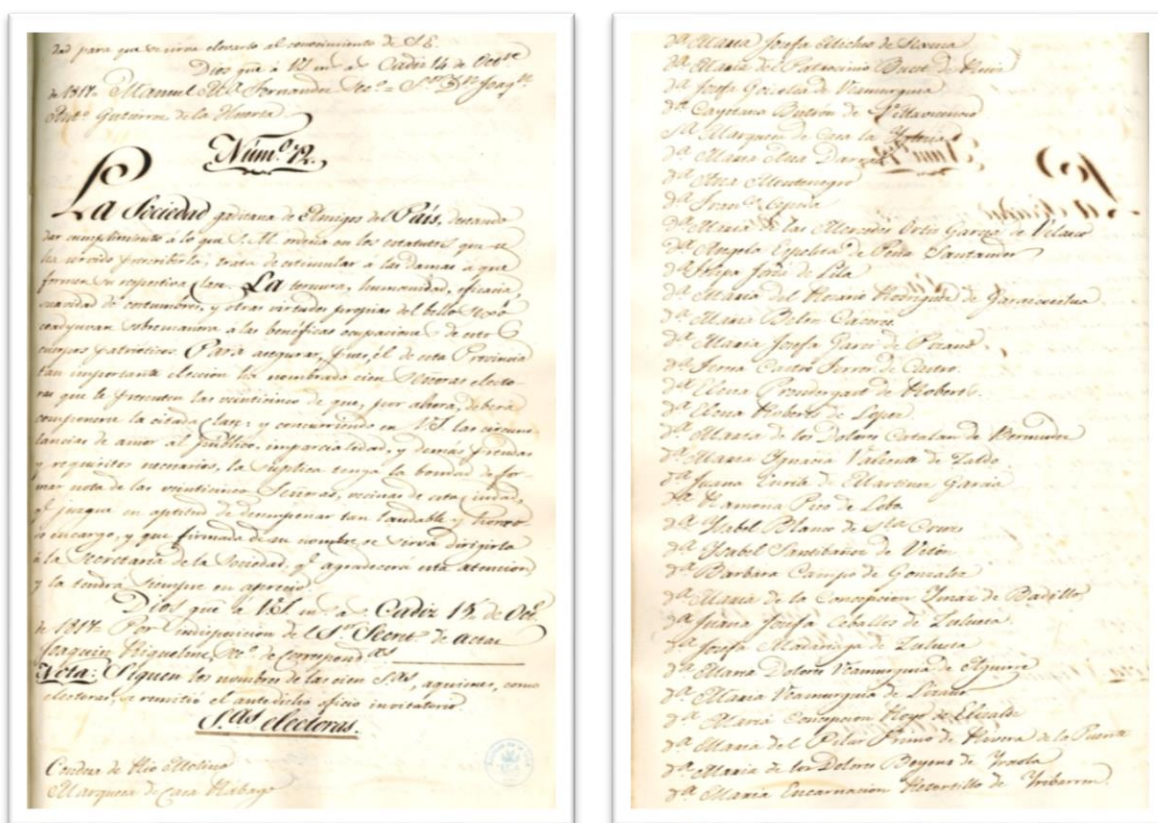 dad para que se sirva elevarlo al conocimiento de S.E.
Dios gue à V.I. m a Cadiz 14 de Octre
de 1817. Manuel Ma Fernandez
Anto Gutierrez de la Huerta.
Núm.o 12.
La Sociedad gaditana de Amigos del País, deseando
dar cumplimiento à lo que S.M. ordena en los estatutos que se
ha servido prescribirla, trata de articular à las damas à que
formen su respectiva clase. La ternura, humanidad, eficacia
suavidad de costumbres, y otras virtudes propias del bello sexô
coadyuvan sobremanera à las benéficas ocupaciones de estos
cuerpos patrióticos. Para asegurar, pues, él de esta Provincia
tan importante eleccion ha nombrado cien Señoras electo-
ras que le presenten las veinticinco de que, por ahora, deberá
componerse la citada clase; y concurriendo en V.S. las circuns-
tancias de amor al público, imparcialidad, y demás prendas
y requisitos necesarios, la suplica tenga la bondad de for-
mar nota de las veinticinco Señoras, vecinas de esta ciudad,
qe juzgue en aptitud de desempeñar tan laudable y honro-
so encargo, y que firmada de su nombre se sirva dirigirla
à la Secretaría de la Sociedad, qe agradecerá esta atencion
y la tendrá siempre en aprecio.
Dios gue à V.S. m a Cadiz 15 de Oct
de 1817. Por indisposicion del Sr Secret de actas
Joaquin Riquelme, de correspond as
Nota: Siguen los nombres de las cien S.as, aquienes, como
electoras, se remitió el antedicho oficio invitatorio
S.as electoras.
Condesa de Rio Molino
Marquesa de Casa Rabago
Da Maria Josefa Micheo de
Da Maria del Patrocinio de
Da Josefa de Veamurguia
Da Cayetana Butrón de Villavicencio
Sa Marquesa de Casa la
Da Maria Ana
Da Ana Montenegro
Da Fran.ca Cepeda
Da Maria de las Mercedes Ortiz Garcia de Velasco
Da Angela Espelosia de Peña Santander
Da Josefa de Lila
Da Maria del Rosario Rodriguez de
Da Maria Belen Caceres
Da Maria Josefa Garcí de
Da Castro Ferrer de Castro.
Da Elena Prendergast de Roberts.
Da Elena Roberts de Lopez
Da Maria de los Dolores Catalan de Bermudez
Da Maria Ygnacia Valiente de Zaldo
Da Juana Enrile de Martinez Garcia
Da Ramona Pico de Lobo
Da Ysabel Blanco de Sta Cruz
Da Ysabel Santibañez de Vitón
Da Barbara Campo de Gonzalez
Da Maria de la Concepcion Ymaz de Badillo
Da Juana Josefa Ceballos de Zulueta
Da Josefa Madariaga de Zulueta
Da Maria Dolores Veamurguia de Aguirre
Da Maria Veamurguia de Lizaur
Da Maria Concepcion Hoyo de Elizalde
Da Maria del Pilar Primo de Rivera de la Puente
Da Maria de los Dolores de Ysasola
Da Maria Encarnacion Retortillo de Yribarren